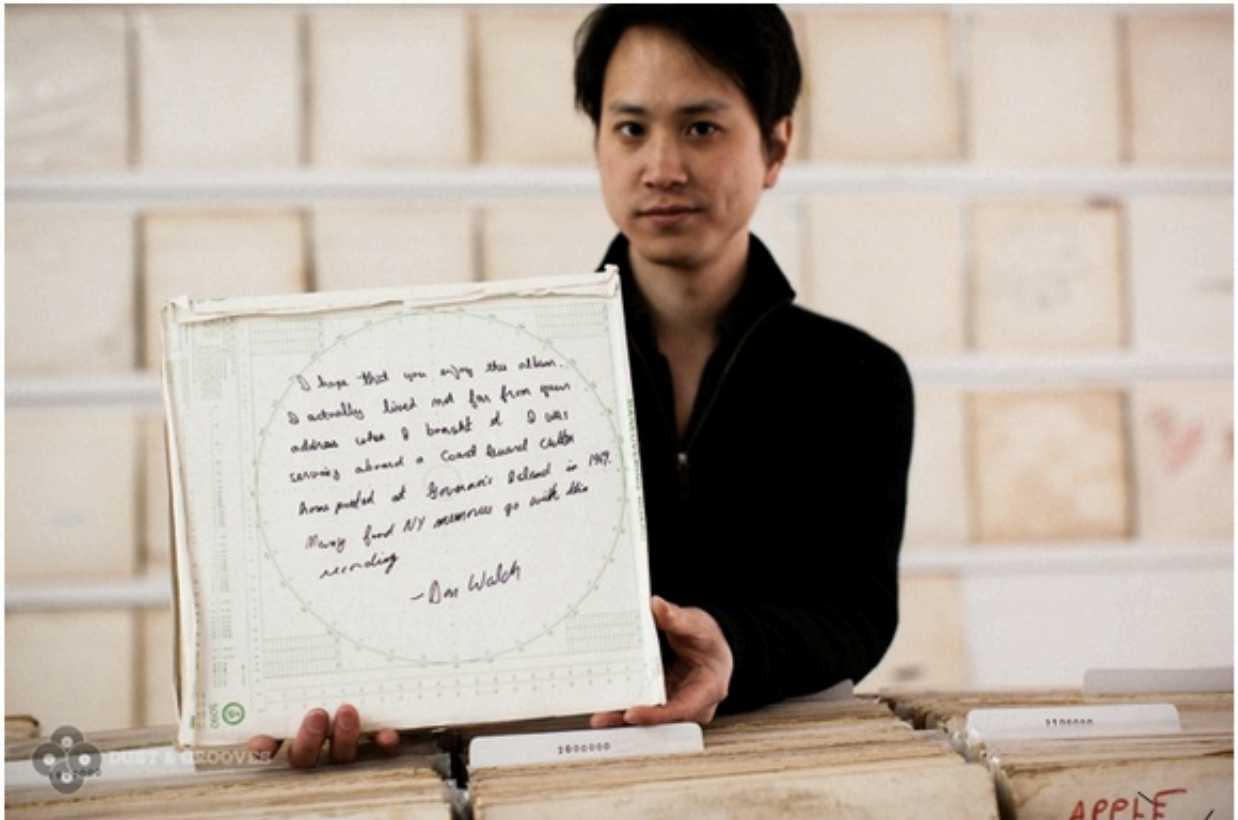 I hope that you enjoy this album.
I actually lived not far from your
address when I bought it. I was
serving aboard a Coast Guard Cutter
home ported at Governor's Island in 1969.
Many fond NY memories go with this
recording
-Don Walsh
5090
2000000
2100000
APPLE
DUST & GROOVES